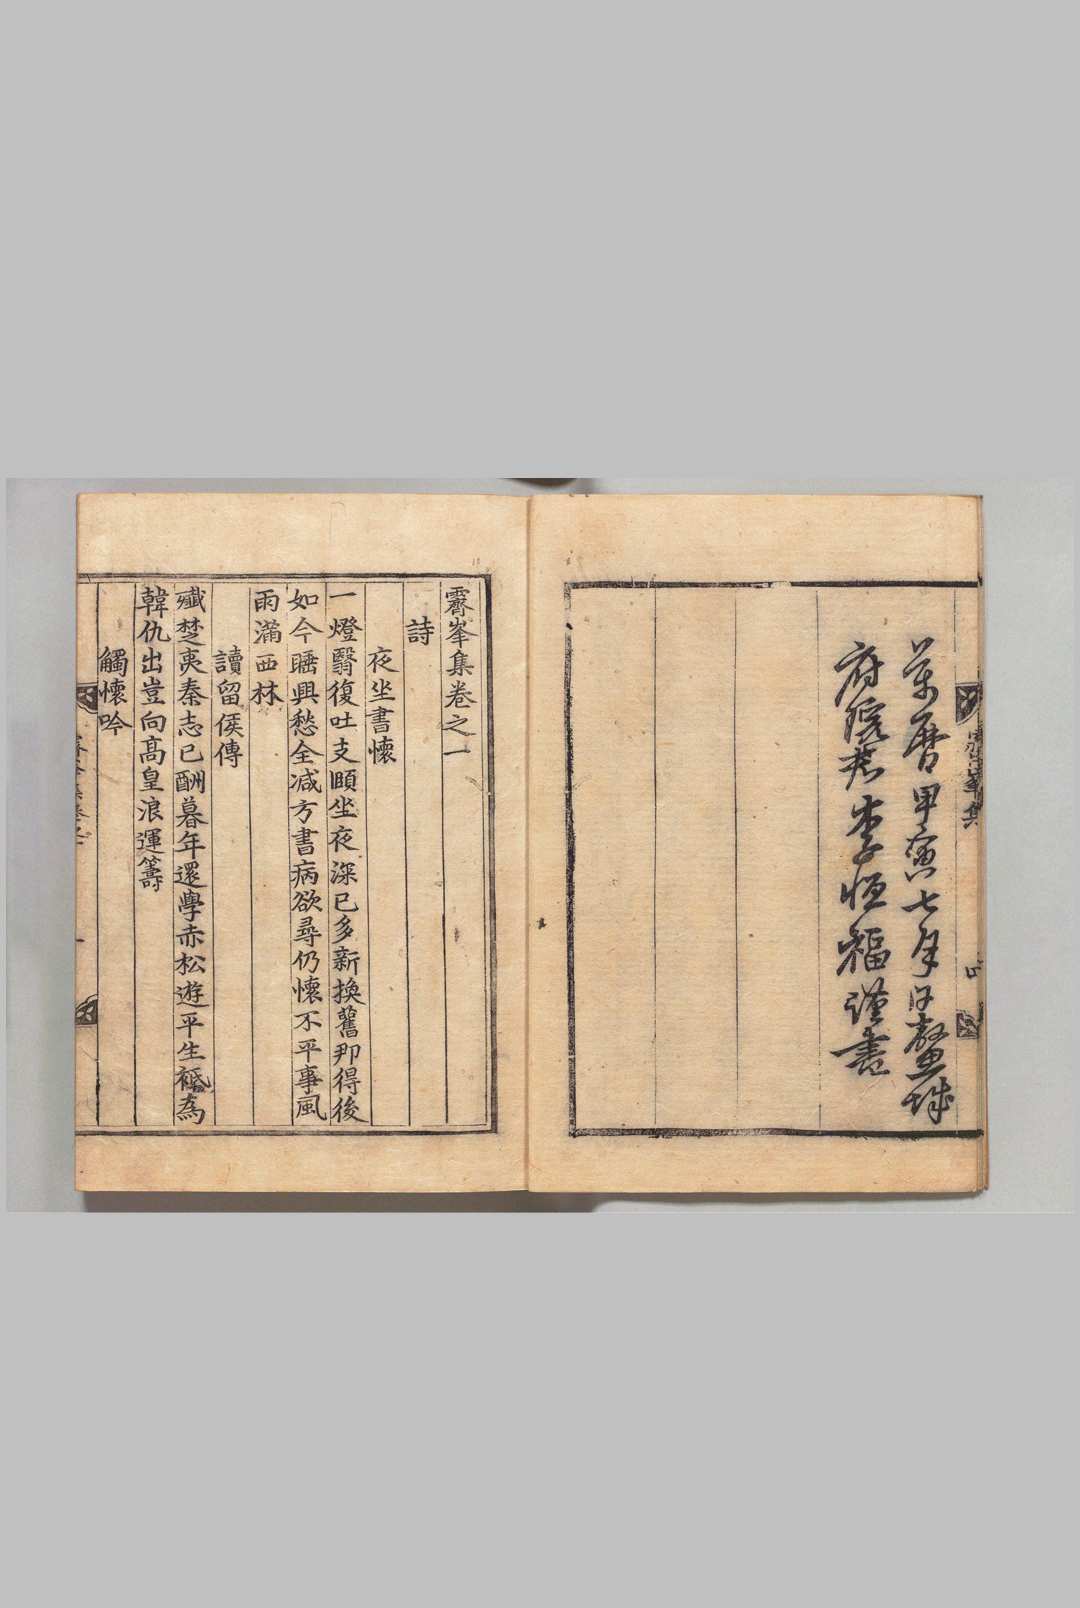 霽峯集
萬曆甲寅七月日鰲城
府院君李恒福謹書
霽峯集卷之一
詩
夜坐書懷
一燈翳復吐支頤坐夜深已多新換舊那得後
如今睡興愁全减方書病欲尋仍懷不平事風
雨滿西林
讀留侯傳
殲楚夷秦志已酬暮年還學赤松遊平生秪為
韓仇出豈向高皇浪運籌
觸懷吟